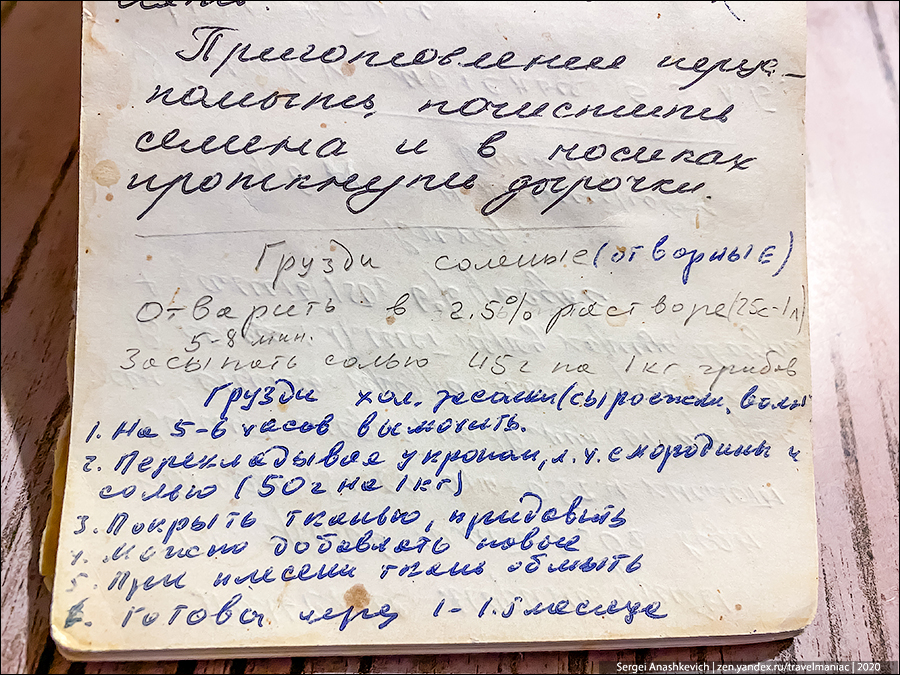 Приготовление перца -
помыть, почистить
семена и в носиках
проткнуть дырочки.
Грузди соленые (отворные)
Отварить в 2.5% растворе (25г-1л)
5-8 мин.
Засыпать солью 45г на 1кг грибов
Грузди хол. засолки (сыроежки, волн
1. На 5-6 часов вымочить.
2. Перекладывая укропом, л.ч. смородины и
солью (50г на 1кг)
3. Покрыть тканью, придавить
4. Можно добавлять новые
5. При плесени ткань обмыть
6. Готовы через 1-1.5 месяца
Sergei Anashkevich | zen.yandex.ru/travelmaniac | 2020